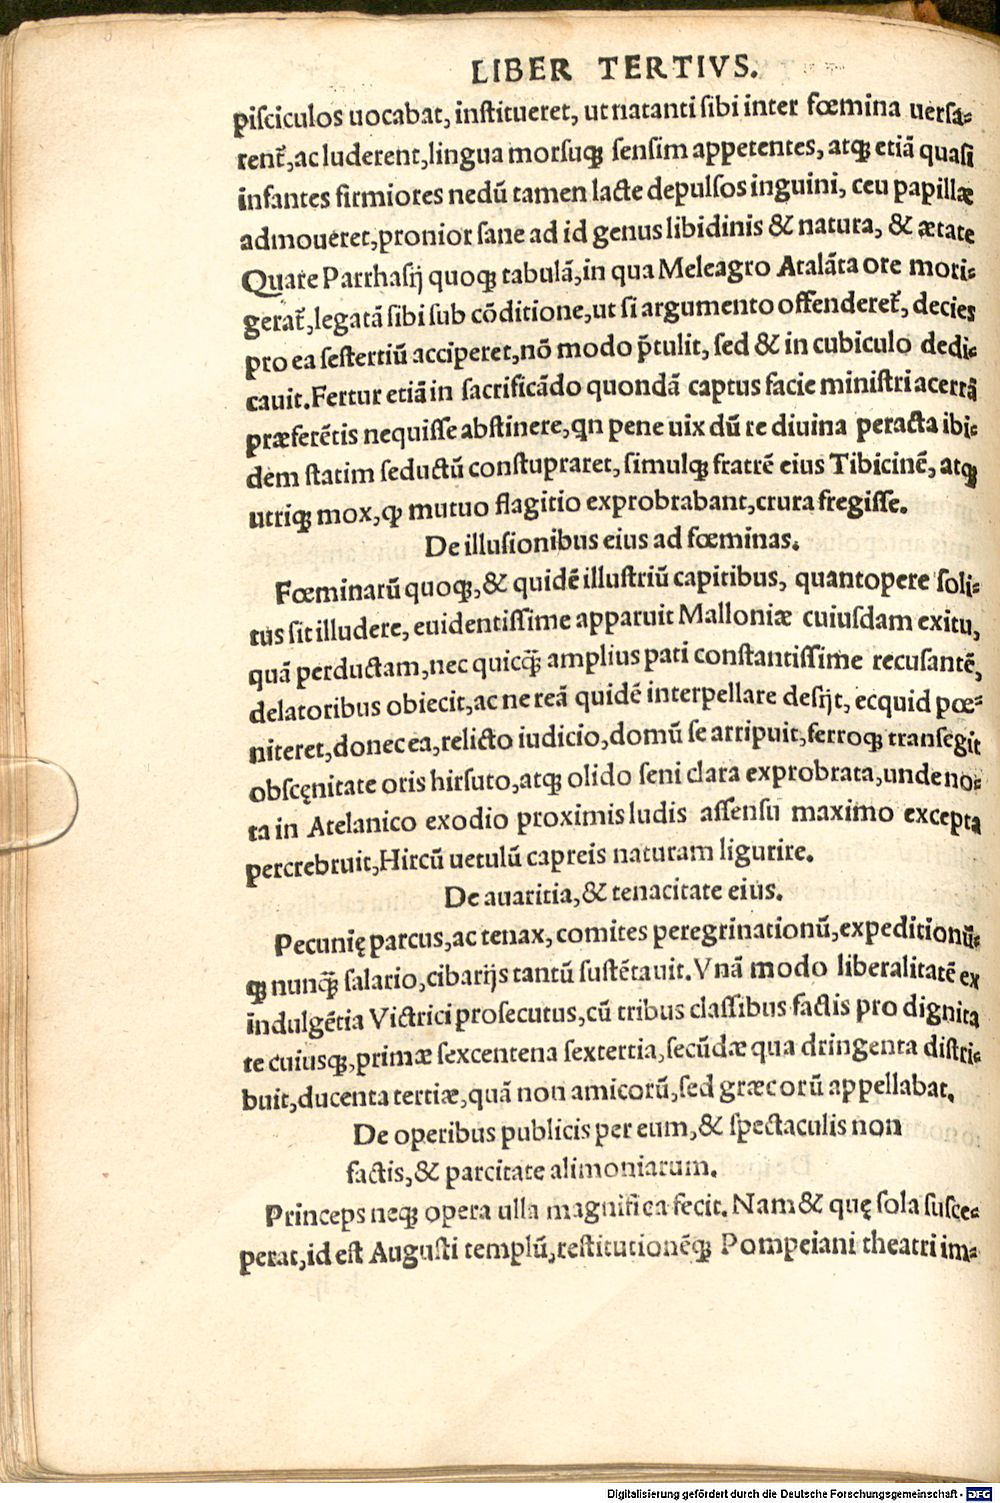 LIBER TERTIVS.
pisciculos uocabat, institueret, ut natanti sibi inter fœmina uersa-
rent᷑, ac luderent, lingua morsuq; sensim appetentes, atq; etiā quasi
infantes firmiores nedū tamen lacte depulsos inguini, ceu papillæ
admoueret, pronior sane ad id genus libidinis & natura, & ætate
Quare Parrhasij quoq; tabulā, in qua Meleagro Atalāta ore mori-
gerat᷑, legatā sibi sub cōditione, ut si argumento offenderet᷑, decies
pro ea sestertiū acciperet, nō modo p̄tulit, sed & in cubiculo dedi-
cauit. Fertur etiā in sacrificādo quondā captus facie ministri acerrā
præferētis nequisse abstinere, qn pene uix dū re diuina peracta ibi-
dem statim seductū constupraret, simulq; fratrē eius Tibicinē, atq;
utriq; mox, ꝙ mutuo flagitio exprobrabant, crura fregisse.
De illusionibus eius ad fœminas.
Fœminarū quoq;, & quidē illustriū capitibus, quantopere soli-
tus sit illudere, euidentissime apparuit Malloniæ cuiusdam exitu,
quā perductam, nec quicq̄ amplius pati constantissime recusantē,
delatoribus obiecit, ac ne reā quidē interpellare desijt, ecquid pœ-
niteret, donec ea, relicto iudicio, domū se arripuit, ferroq; transegit
obscęnitate oris hirsuto, atq; olido seni clara exprobrata, unde no-
ta in Atelanico exodio proximis ludis assensu maximo excepta
percrebruit, Hircū uetulū capreis naturam ligurire.
De auaritia, & tenacitate eius.
Pecunię parcus, ac tenax, comites peregrinationū, expeditionū-
q; nunq̄ salario, cibarijs tantū sustētauit. Vnā modo liberalitatē ex
indulgētia Victrici prosecutus, cū tribus classibus factis pro dignita
te cuiusq;, primæ sexcentena sextertia, secūdæ qua dringenta distri-
buit, ducenta tertiæ, quā non amicorū, sed græcorū appellabat.
De operibus publicis per eum, & spectaculis non
factis, & parcitate alimoniarum.
Princeps neq; opera ulla magnifica fecit. Nam & quę sola susce-
perat, id est Augusti templū, restitutionēq; Pompeiani theatri im-
Digitalisierung gefördert durch die Deutsche Forschungsgemeinschaft - DFG